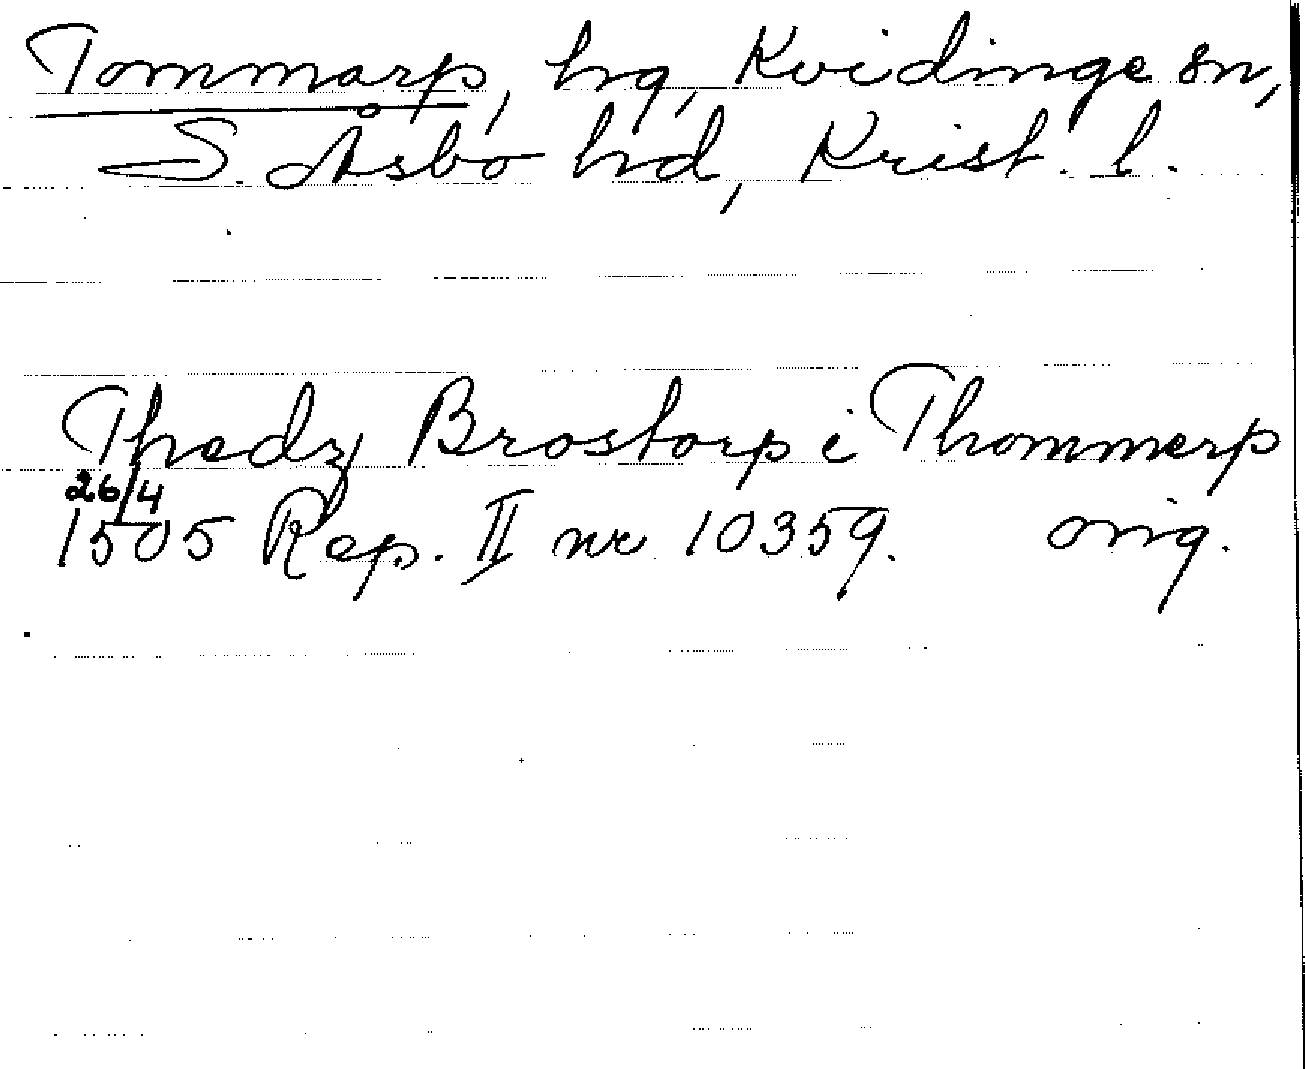 Tommarp, hg, Kvidinge sn,
S. Åsbo hd, Krist. l.
Thedz Brostorp i Thommerp
26/4
1505 Rep. II nr 10359. orig.